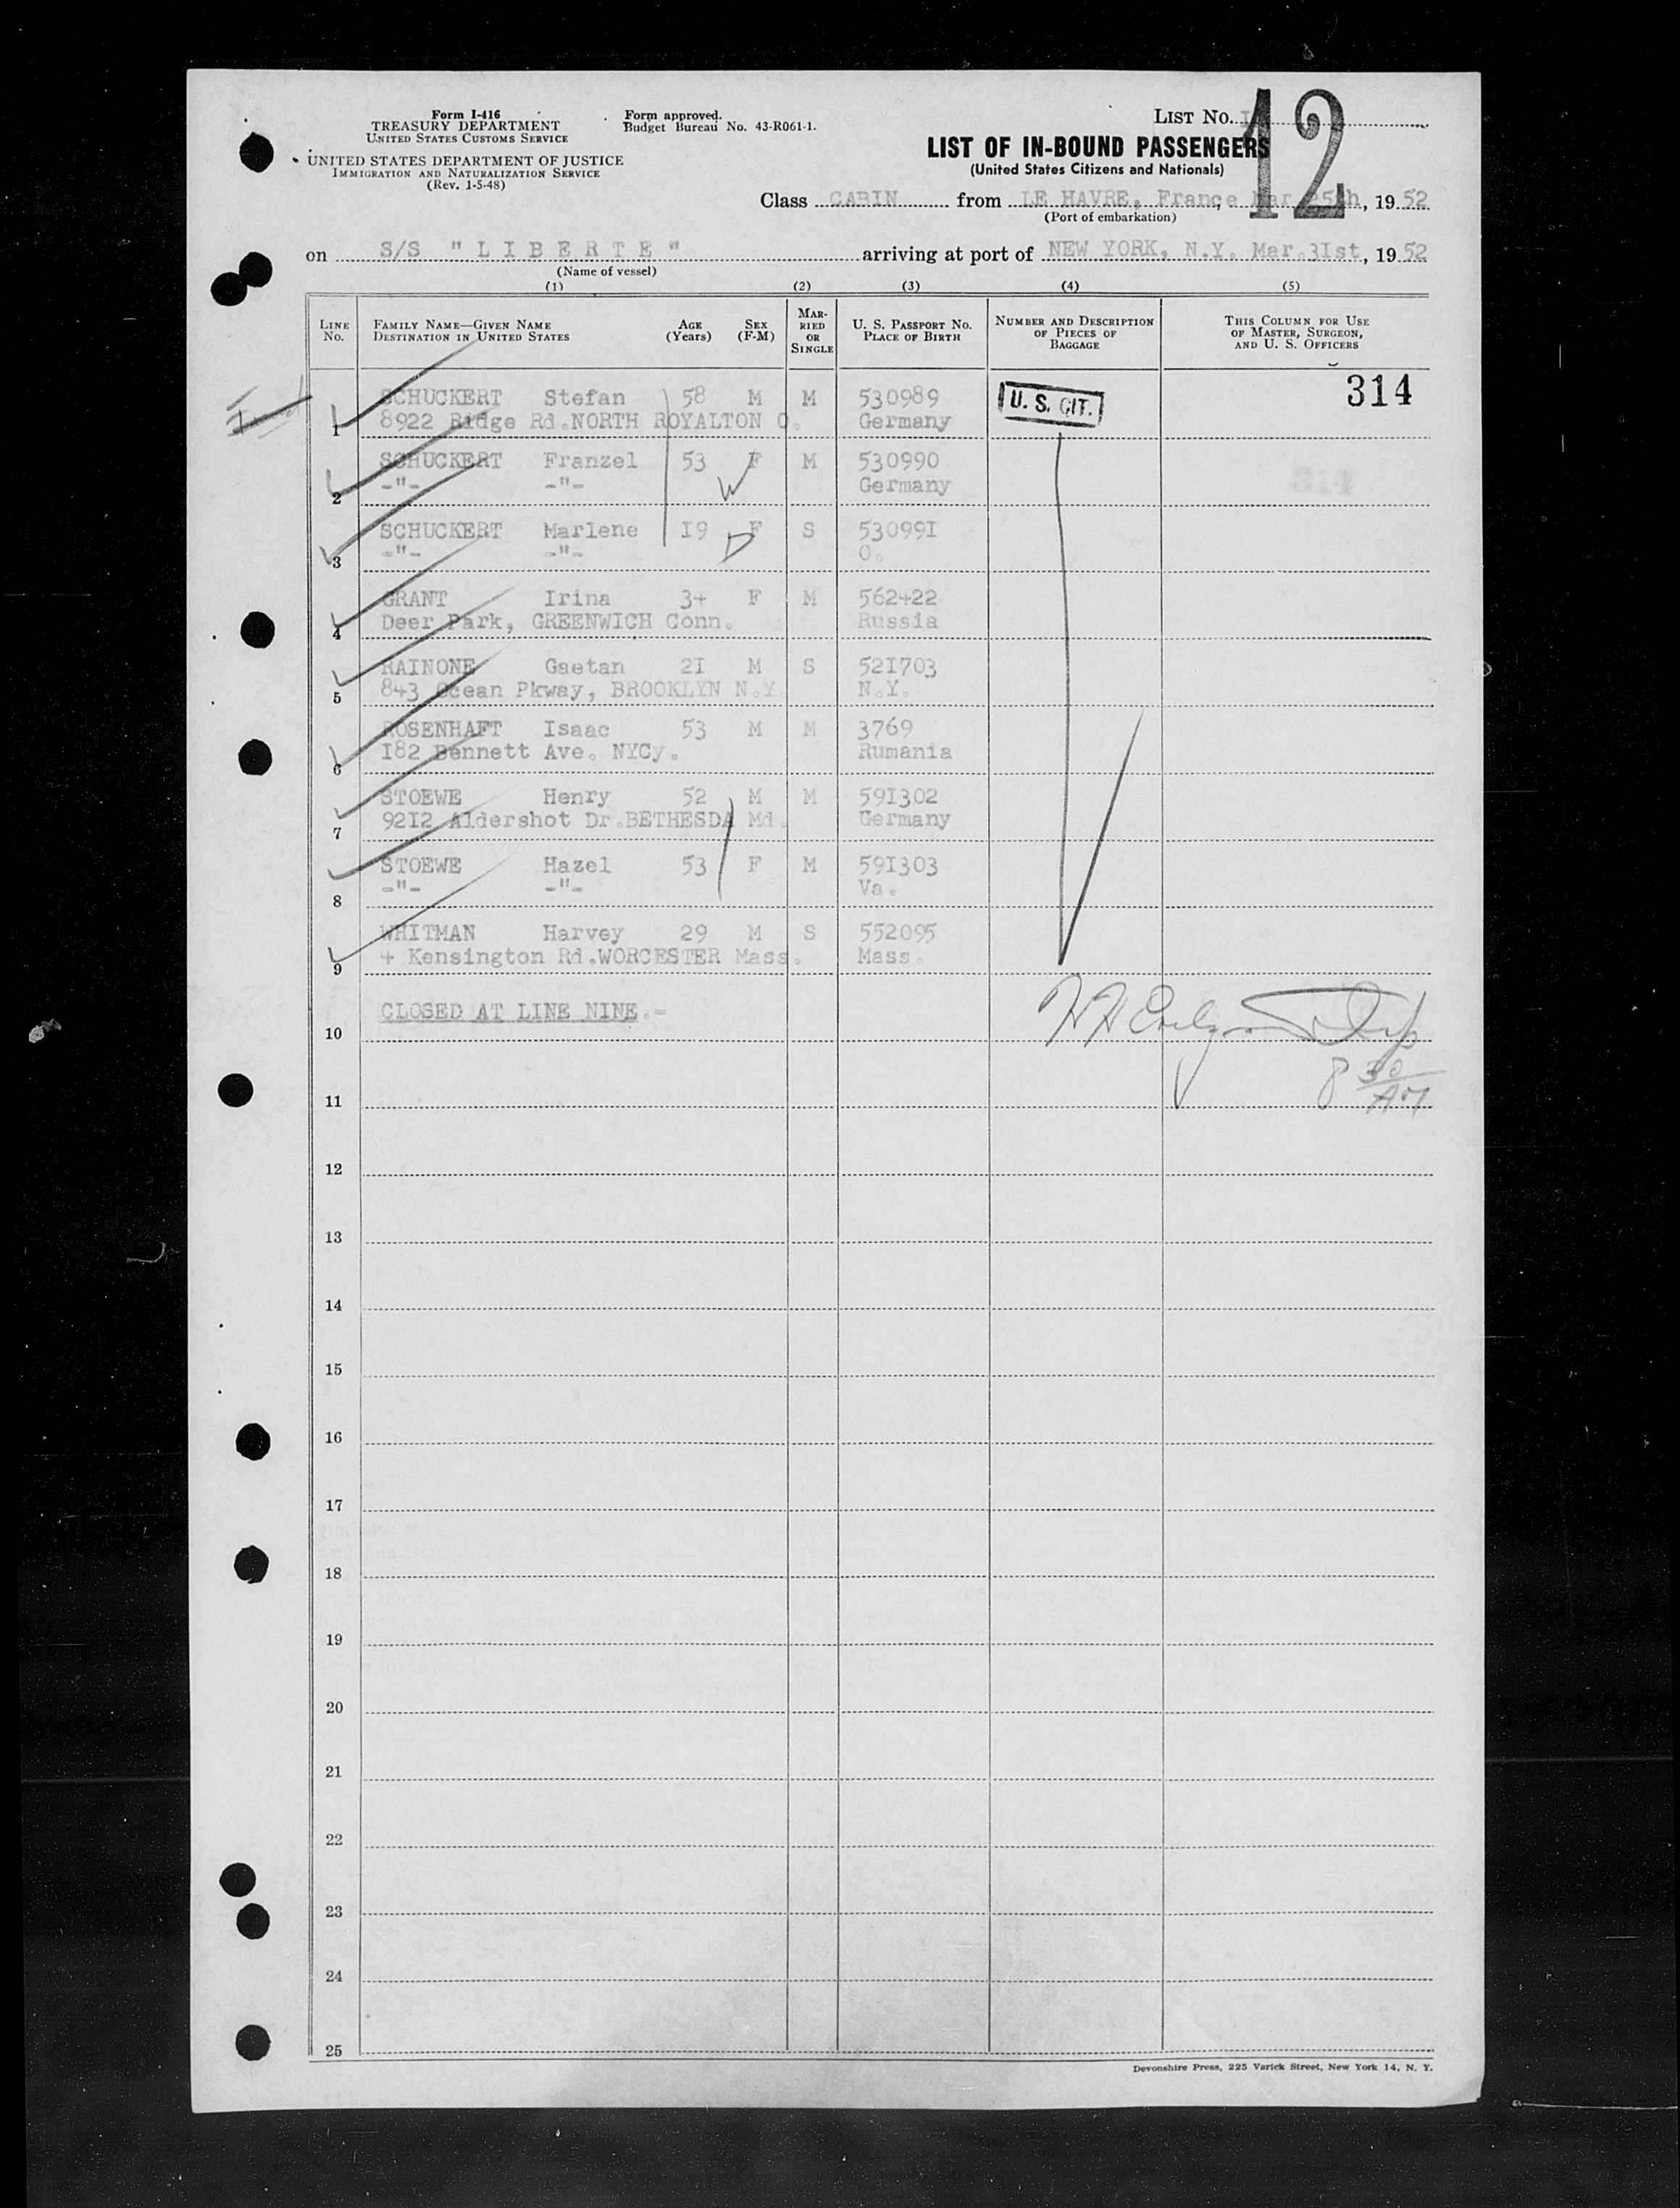 Form I-416
TREASURY DEPARTMENT
UNITED STATES CUSTOMS SERVICE
UNITED STATES DEPARTMENT OF JUSTICE
IMMIGRATION AND NATURALIZATION SERVICE
(Rev. 1-5-48)
Form approved.
Budget Bureau No. 43-R061-1.
LIST NO. 12
LIST OF IN-BOUND PASSENGERS
(United States Citizens and Nationals)
Class CABIN from LE HAVRE, France, Mar 25th, 19 52
(Port of embarkation)
on S/S "LIBERTE" arriving at port of NEW YORK, N.Y. Mar.3Ist, 19 52
(Name of vessel)
(1) (2) (3) (4) (5)
LINE NO. FAMILY NAME—GIVEN NAME DESTINATION IN UNITED STATES AGE (Years) SEX (F-M) MARRIED OR SINGLE U. S. PASSPORT NO. PLACE OF BIRTH NUMBER AND DESCRIPTION OF PIECES OF BAGGAGE THIS COLUMN FOR USE OF MASTER, SURGEON, AND U. S. OFFICERS
314
SCHUCKERT Stefan 58 M M 530989 U. S. CIT.
1 8922 Ridge Rd.NORTH ROYALTON O. Germany
SCHUCKERT Franzel 53 F M 530990
W
2 -"- -"- Germany
SCHUCKERT Marlene I9 F S 53099I
D
3 -"- -"- O.
GRANT Irina 34 F M 562422
4 Deer Park, GREENWICH Conn. Russia
RAINONE Gaetan 2I M S 52I703
5 843 Ocean Pkway, BROOKLYN N.Y. N.Y.
ROSENHAFT Isaac 53 M M 3769
6 I82 Bennett Ave. NYCy. Rumania
STOEWE Henry 52 M M 59I302
7 92I2 Aldershot Dr.BETHESDA Md. Germany
STOEWE Hazel 53 F M 59I303
8 -"- -"- Va.
WHITMAN Harvey 29 M S 552095
9 4 Kensington Rd.WORCESTER Mass. Mass.
CLOSED AT LINE NINE.-
10
8 30 AM
11
12
13
14
15
16
17
18
19
20
21
22
23
24
25
Devonshire Press, 225 Varick Street, New York 14, N. Y.